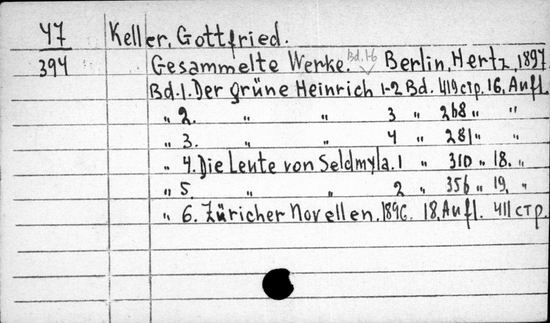 47 Keller, Gottfried.
394 Gesammelte Werke. Bd.1-6 Berlin, Hertz, 1897
Bd.1. Der grüne Heinrich 1-2 Bd. 419 стр. 16, Aufl.
„ 2. „ „ 3 „ 268 „ „
„ 3. „ „ 4 „ 281 „ „
„ 4. Die Leute von Seldmyla. 1 „ 310 „ 18. „
„ 5. „ „ 2 „ 356 „ 19. „
„ 6. Züricher Novellen. 1896. 18, Aufl. 411 стр.